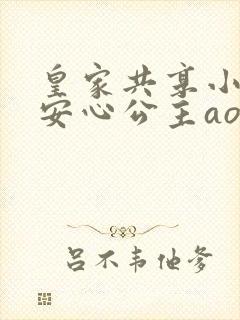 皇家共享小
安心公主ao
吕不韦他爹